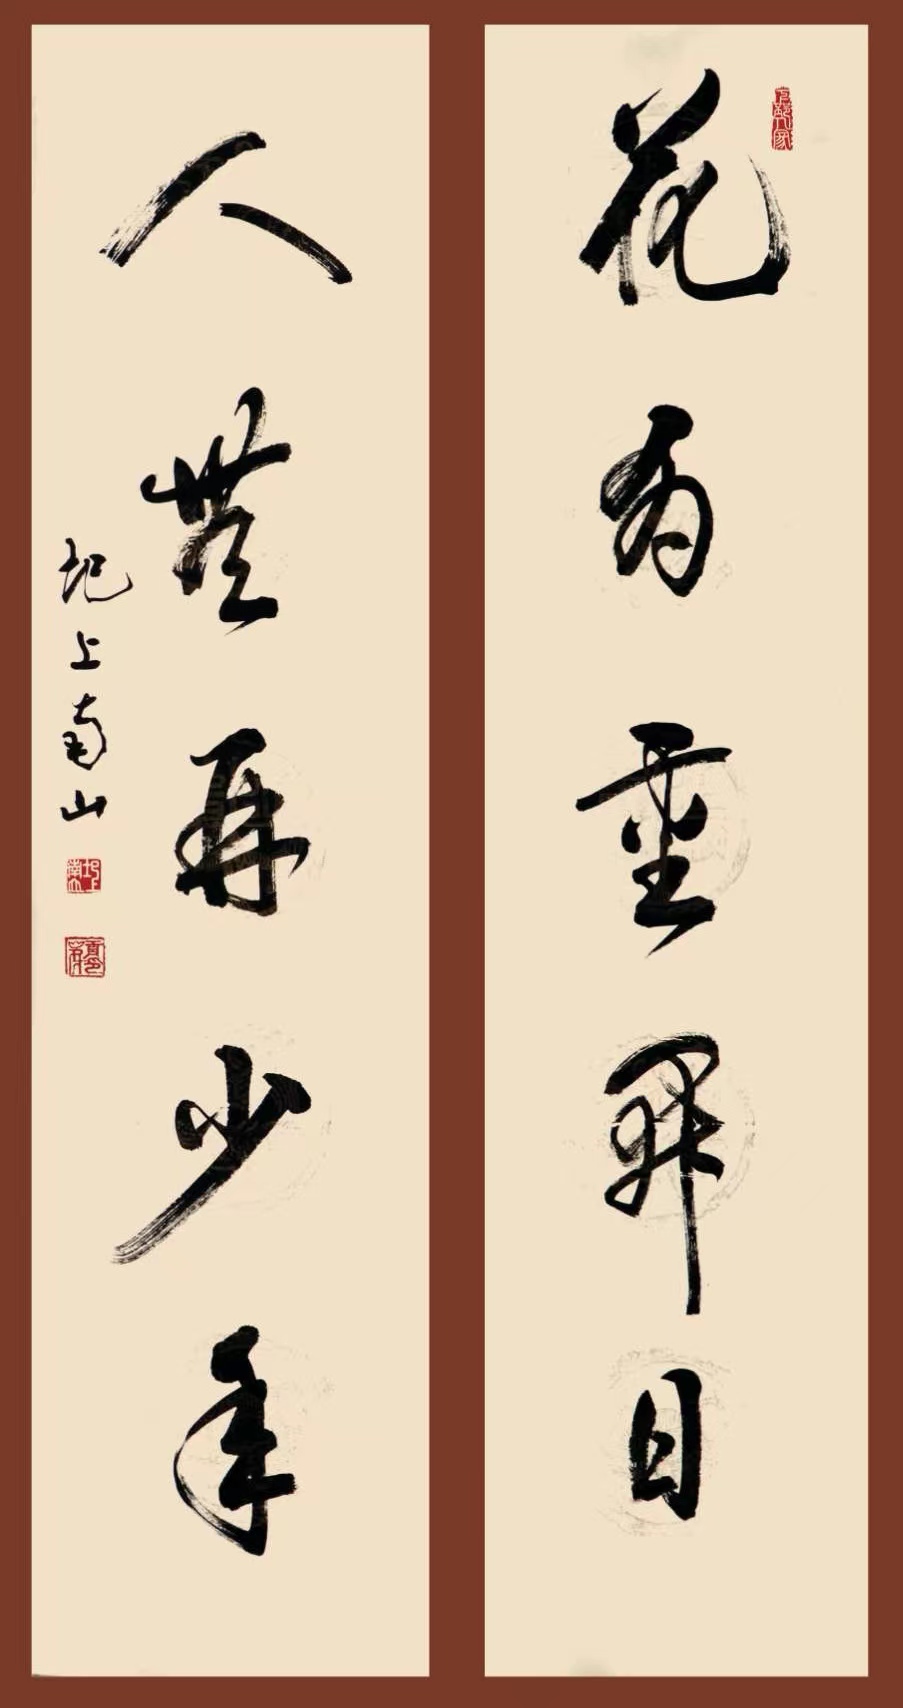 花有重開日
人無再少年
圯上南山